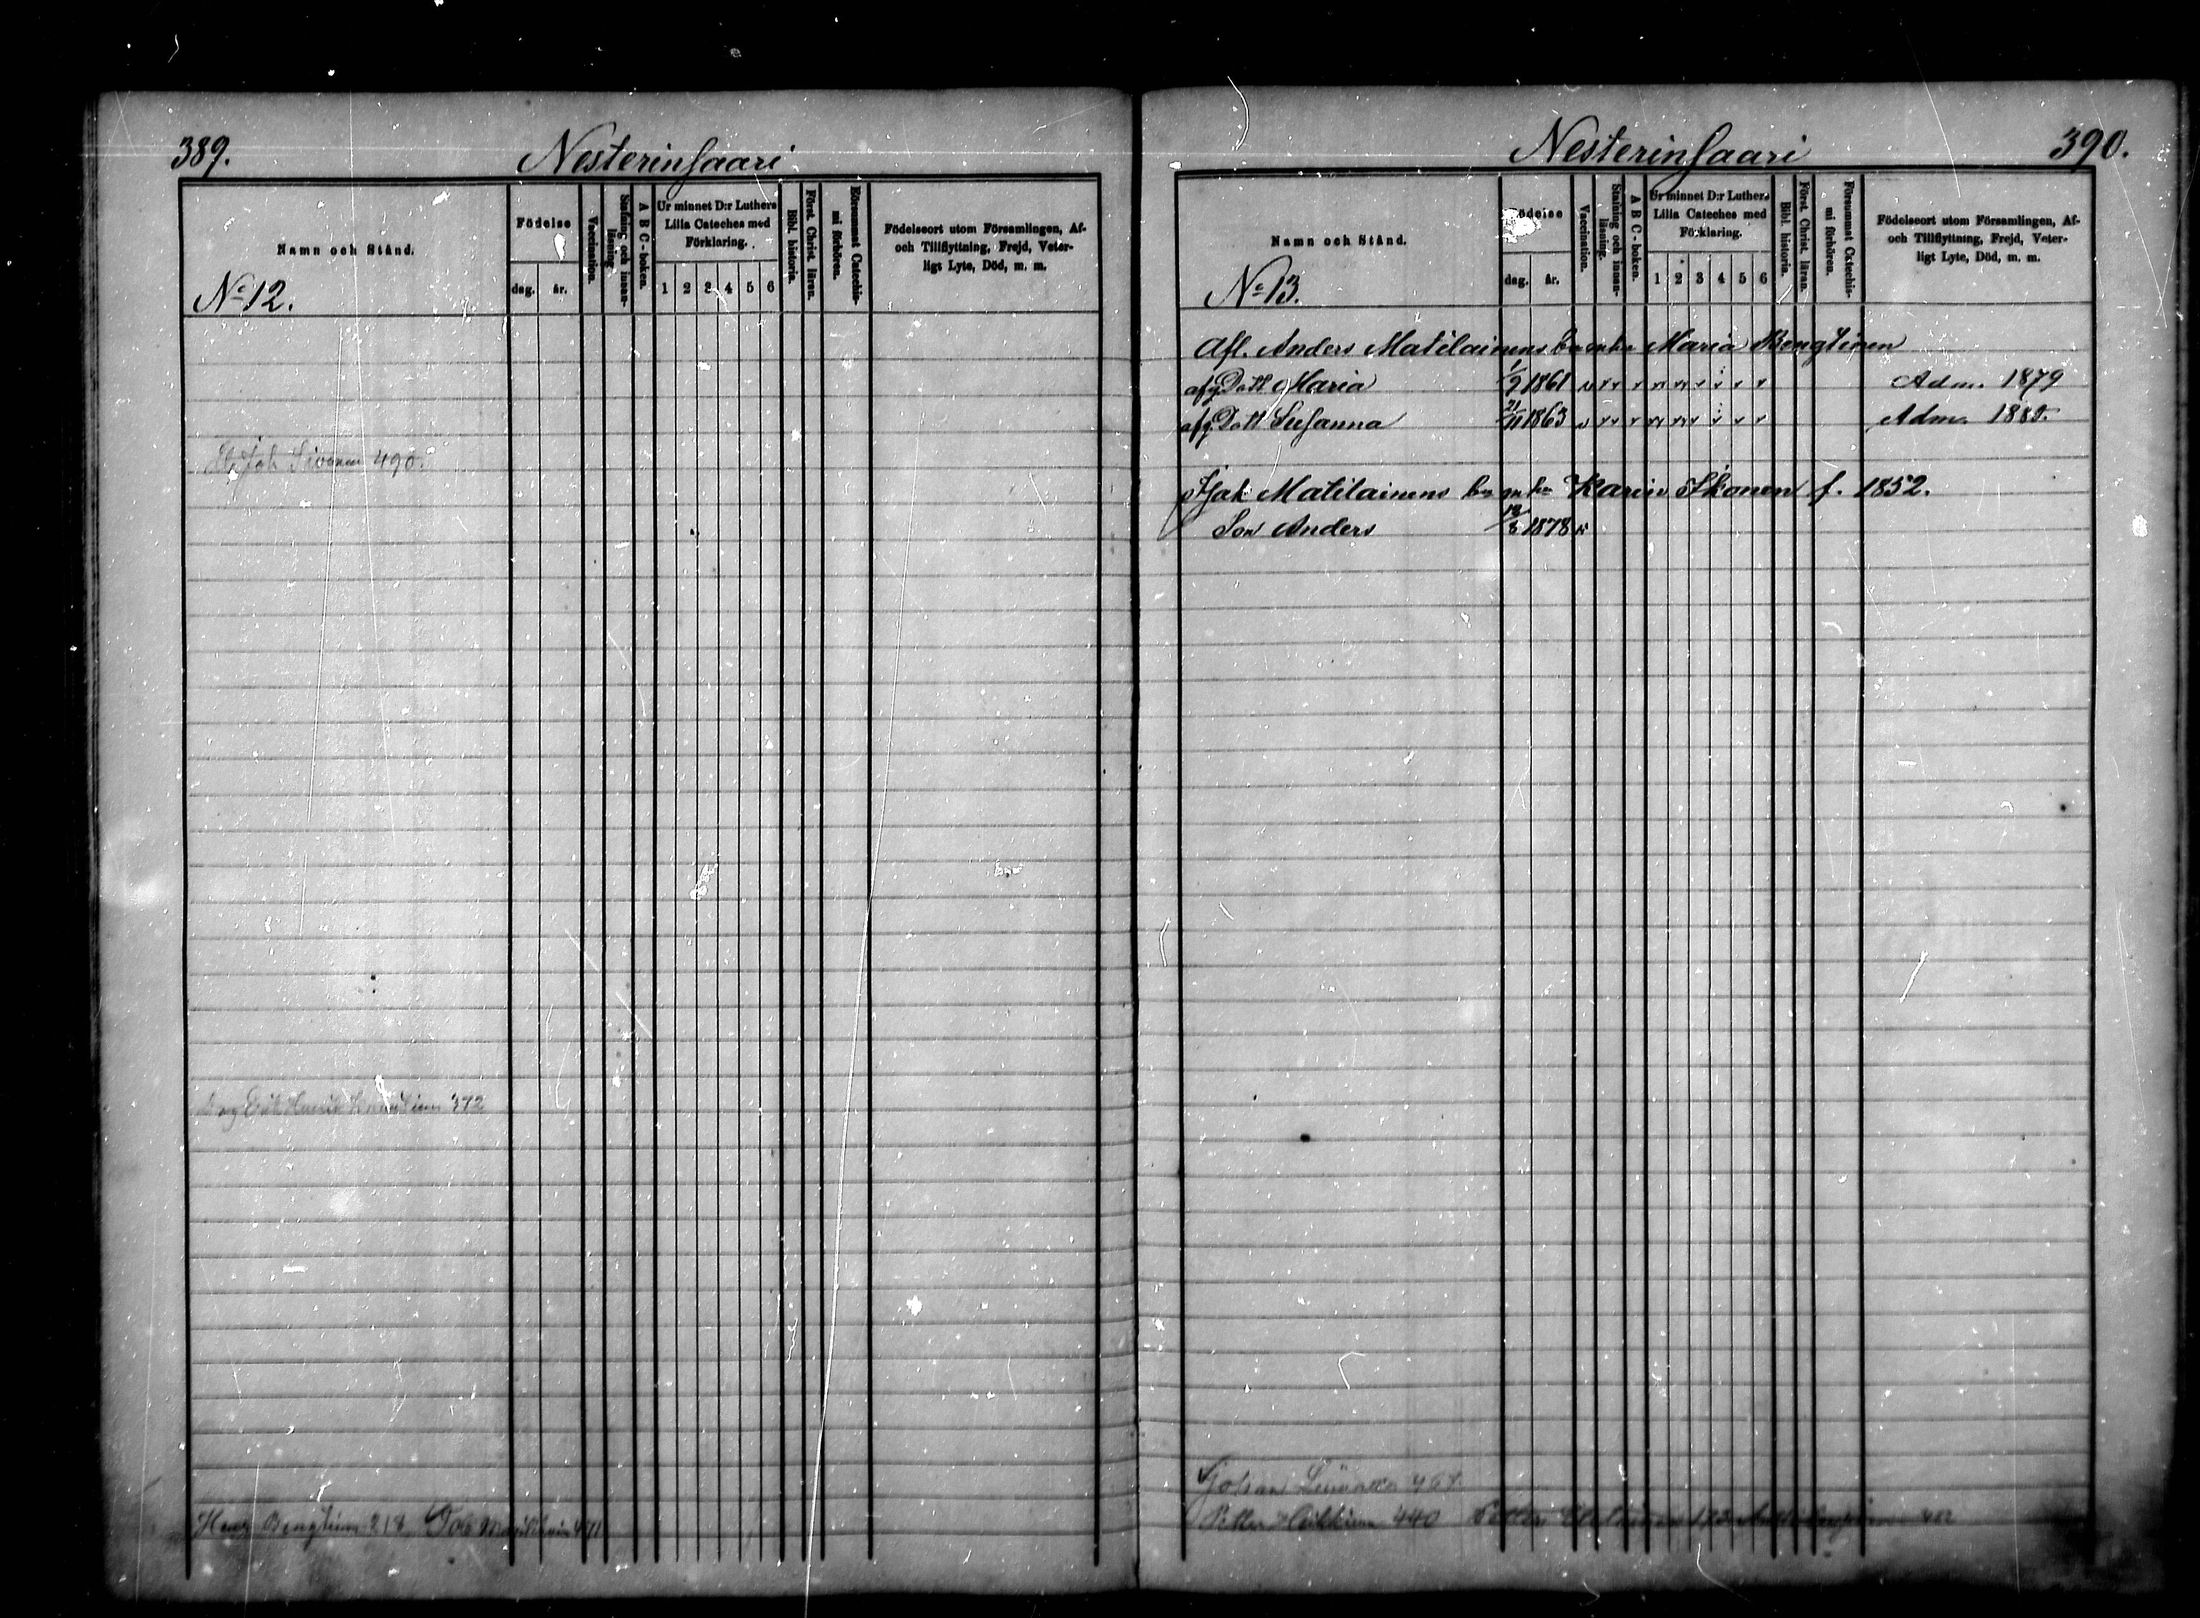 389.
Nesterinsaari
Namn och Stånd.
No 12.
Födelse
dag. år.
Vaccination.
Stafning och innan-läsning
A B C-boken.
Ur minnet D:r Luthers Lilla Cateches med Förklaring.
1 2 3 4 5 6
Bibl. historia.
Först. Christ. läran.
Försummat Catechis-mi förhören.
Födelseort utom Församlingen, Af-
och Tillflyttning, Frejd, Veter-
ligt Lyte, Död, m. m.
Joh Sivonen 490.
372
Henr Bengtinen 218 Joh 471
Nesterinsaari
390.
Namn och Stånd.
No 13.
Födelse
dag. år.
Vaccination.
Stafning och innan-läsning.
A B C-boken.
Ur minnet D:r Luthers Lilla Cateches med Förklaring.
1 2 3 4 5 6
Bibl. historia.
Först. Christ. läran.
Försummat Catechis-mi förhören.
Födelseort utom Församlingen, Af-
och Tillflyttning, Frejd, Veter-
ligt Lyte, Död, m. m.
Afl. Anders Matilainens Maria Bengtinen
afg Dott Maria 1/9 1861 Adm. 1879
afg Dott Susanna 21/11 1863 Adm. 1880.
Jak Matilainens Karin Ikonen f. 1852.
Son Anders 12/8 1878
Johan 467.
Petter Heikkinen 440 Petter